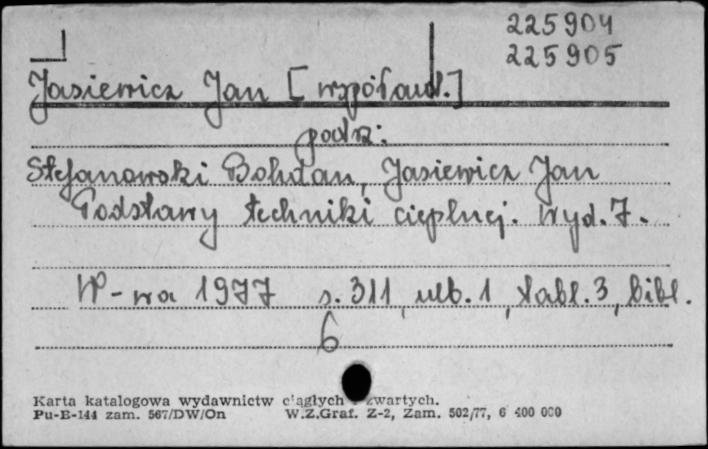 225904
225905
Jasiewicz Jan [współaut.]
podz:
Stefanowski Bohdan, Jasiewicz Jan
Podstawy techniki cieplnej. Wyd. 7.
W-wa 1977 s. 311, ulb. 1, tabl. 3, bibl.
6
Karta katalogowa wydawnictw ciągłych zwartych.
Pu-B-144 zam. 567/DW/On W.Z.Graf. Z-2, Zam. 502/77, 6 400 000